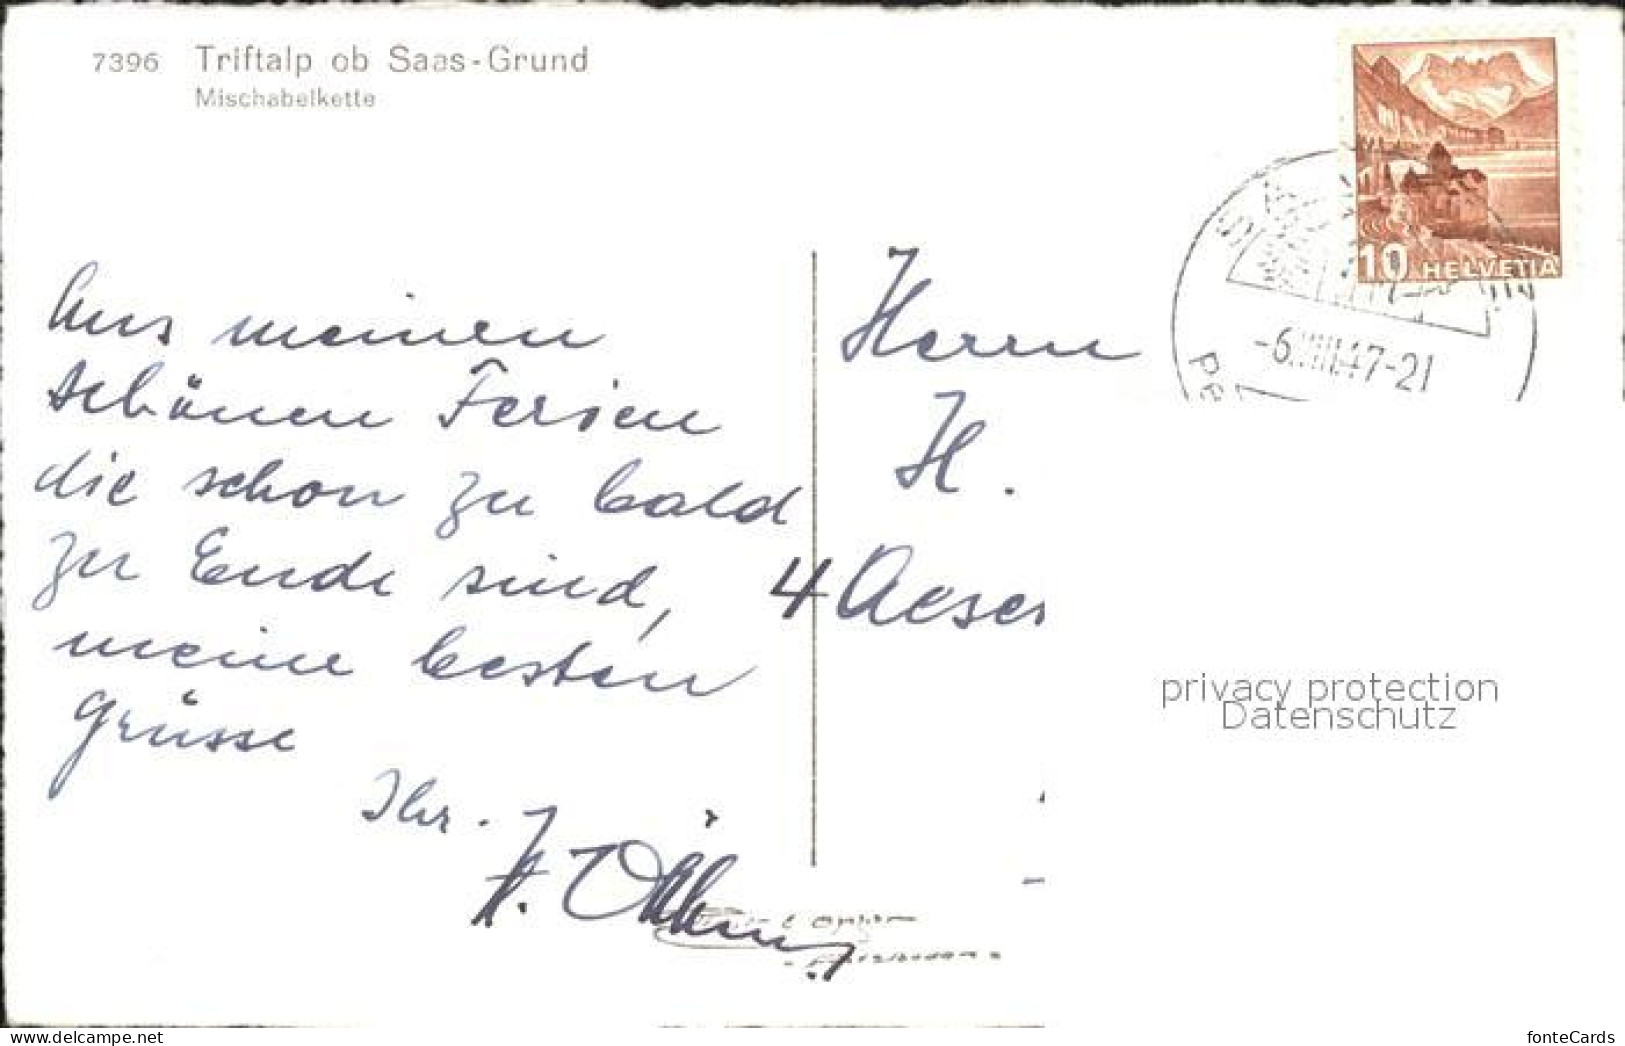 7396 Triftalp ob Saas-Grund
Mischabelkette
10 HELVETIA
-6.VIII.47-21
Aus meinen
schönen Ferien
die schon zu bald
zu Ende sind,
meine besten
Grüsse
Ihr.
Herrn
H.
4 Aeser
privacy protection
Datenschutz
fonteCards
www.delcampe.net